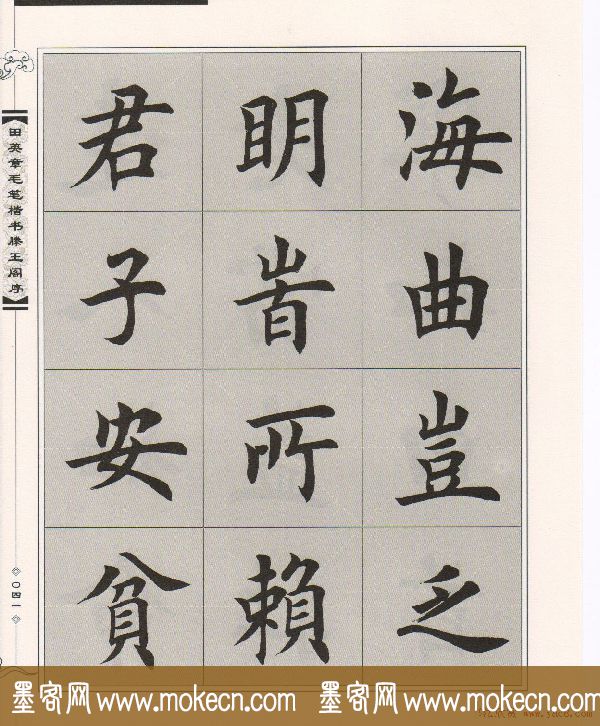 海曲豈乏
明旹所賴
君子安貧
田英章毛笔楷书滕王阁序
〇四一
墨客网 www.mokecn.com 墨客网 www.mokecn.com